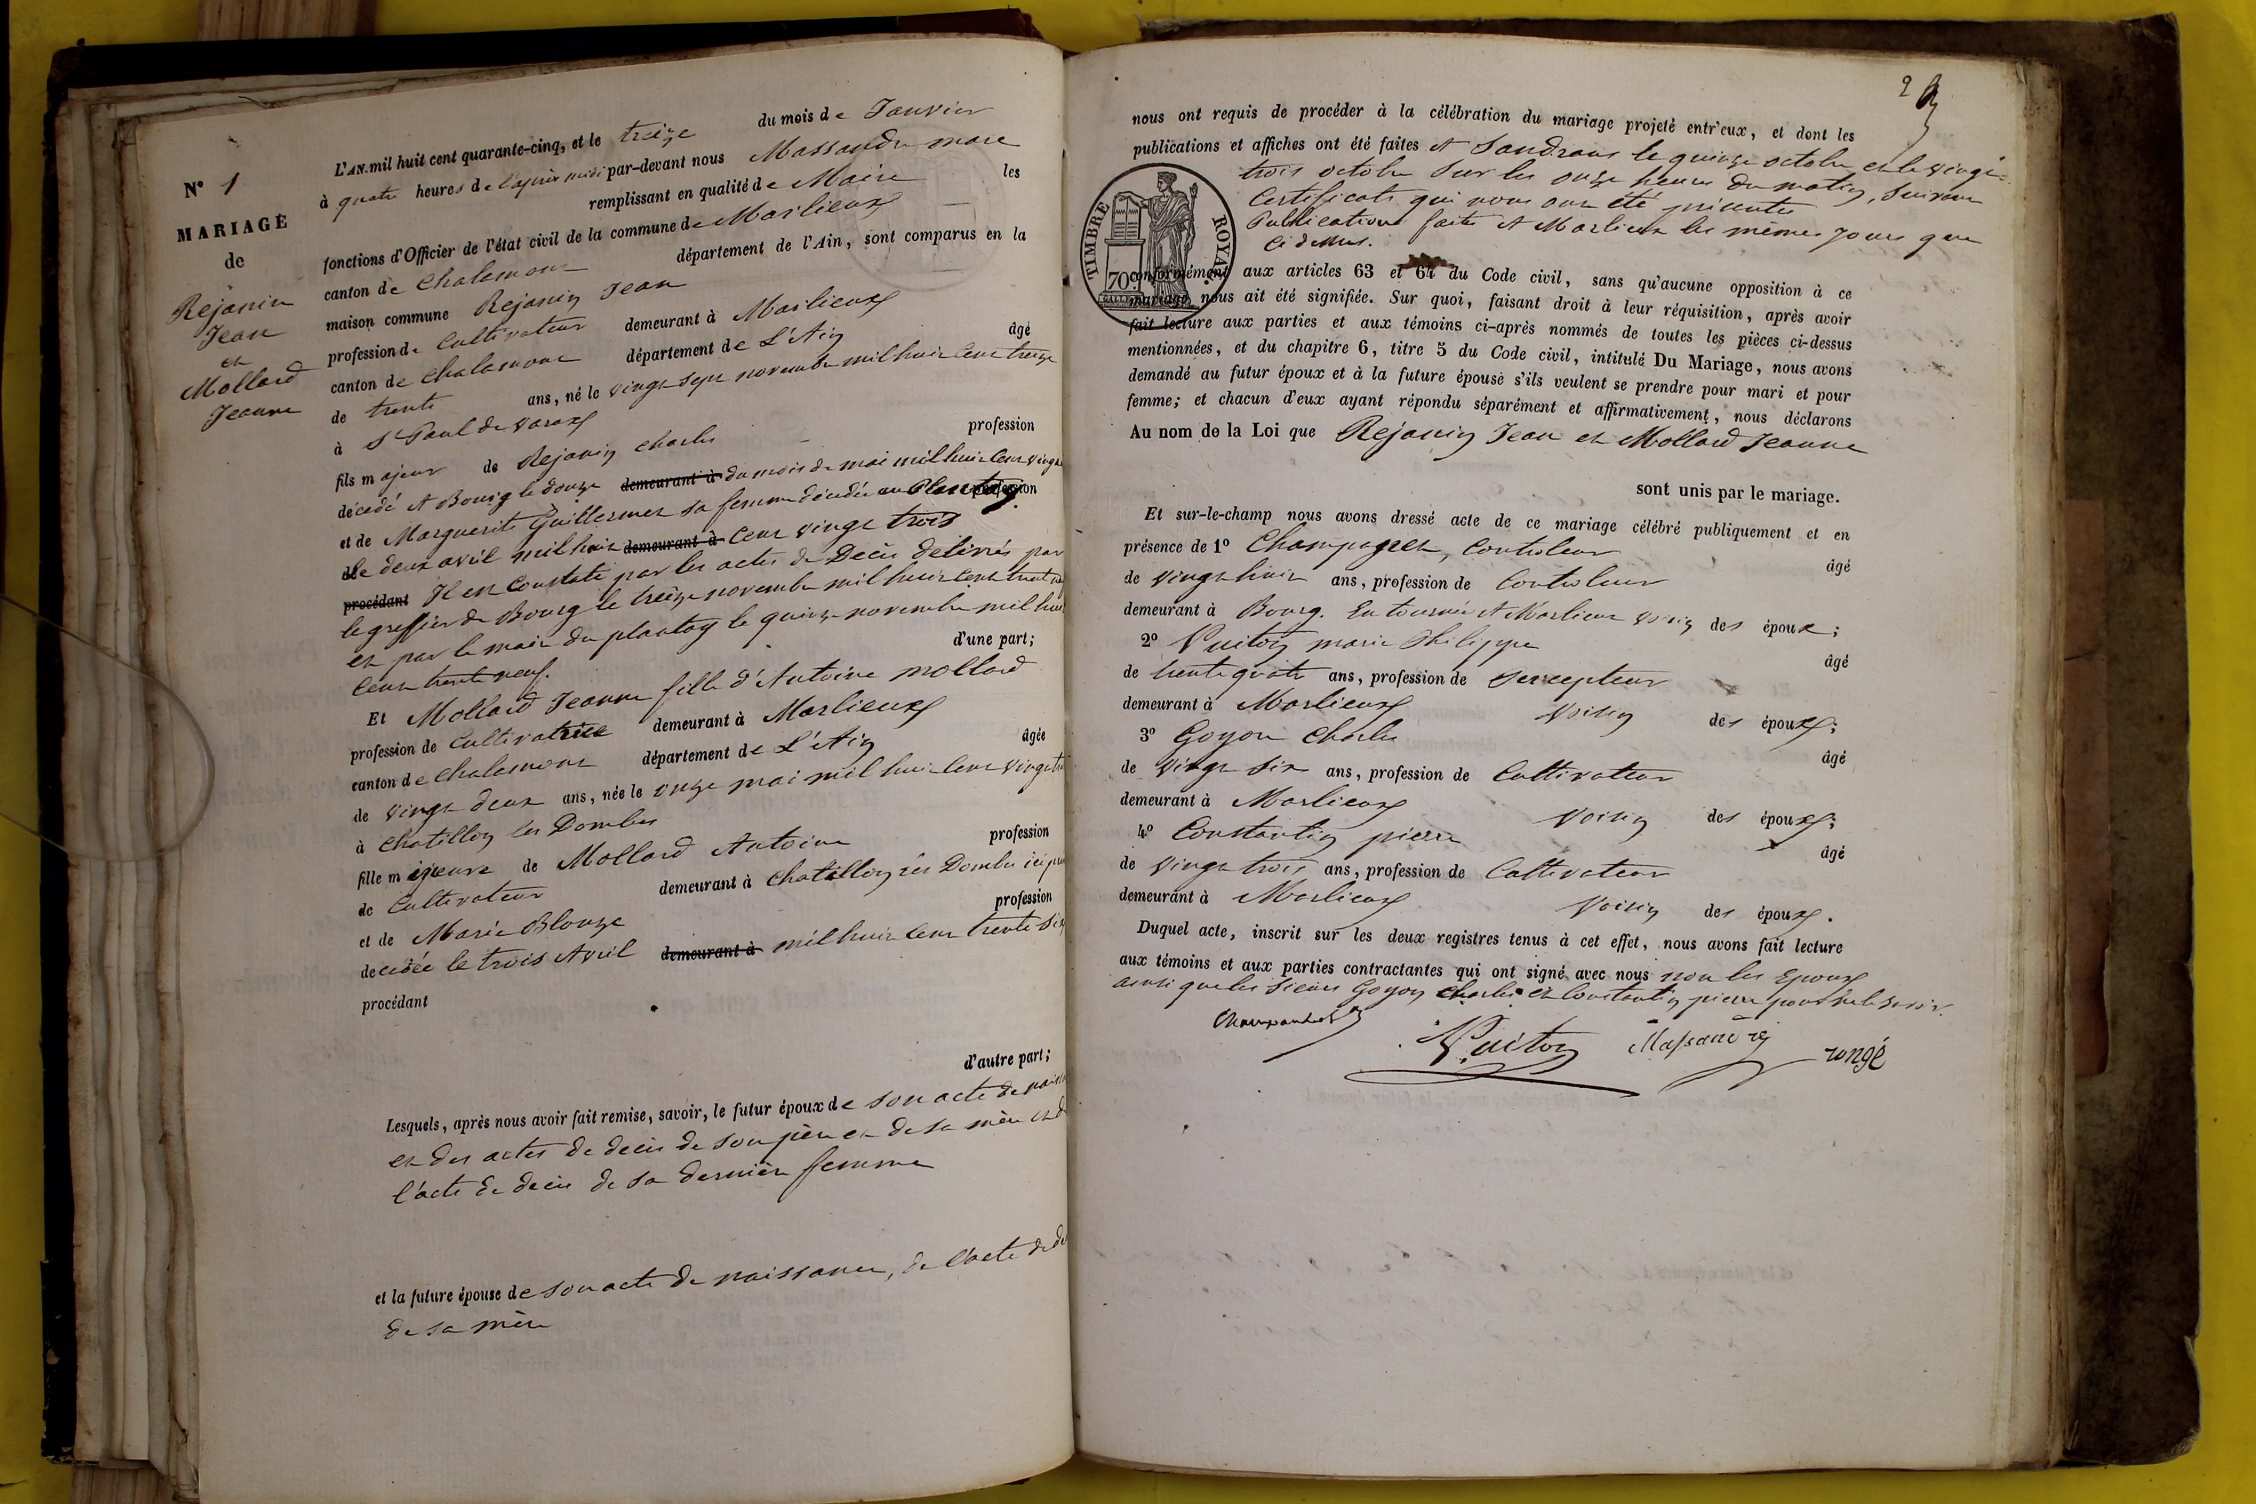 N° 1
MARIAGE
de
Rejanin
Jean
et
Mollard
Jeanne
L'AN mil huit cent quarante-cinq, et le treize du mois de Janvier
à quatre heures de l'après midi par-devant nous Massandre
remplissant en qualité de Maire les
fonctions d'Officier de l'état civil de la commune de Marlieux
canton de Chalamont département de l'Ain, sont comparus en la
maison commune Rejanin Jean
profession de Cultivateur demeurant à Marlieux
canton de Chalamont département de L'Ain âgé
de trente ans, né le vingt sept novembre mil huit cent treize
à St Paul de varax
fils majeur de Rejanin Charles profession
décédé A Bourg le douze demeurant à du mois de mai mil huit cent vingt
et de Marguerite Guillermet sa femme décédée au Plantay profession
le deux avril mil huit demeurant à cent vingt trois
procédant Il est constaté par les actes de Décès délivrés par
le greffier de Bourg le treize novembre mil huit cent trente
et par le maire du plantay le quinze novembre mil huit
cent trente neuf. d'une part;
Et Mollard Jeanne fille d'Antoine mollard
profession de Cultivatrice demeurant à Marlieux
canton de Chalamont département de L'Ain âgée
de vingt deux ans, née le onze mai mil huit cent vingt
à Chatillon les Dombes
fille majeure de Mollard Antoine profession
de Cultivateur demeurant à Chatillon les Dombes ici
et de Marie Blonze profession
decedée le trois Avril demeurant à mil huit cent trente six
procédant
d'autre part;
Lesquels, après nous avoir fait remise, savoir, le futur époux de son acte de
et des actes de décès de son père et de sa mère et de
l'acte de décès de sa dernière femme
et la future épouse de son acte de naissance, de l'acte de
de sa mère
2
nous ont requis de procéder à la célébration du mariage projeté entr'eux, et dont les
publications et affiches ont été faites A Sandrans le quinze octobre et le vingt
trois octobre sur les onze heures du matin, suivant
Certificats qui nous ont été présentés
Publications faites A Marlieux les mêmes jours que
ci dessus.
TIMBRE ROYAL
70c
conformément aux articles 63 et 64 du Code civil, sans qu'aucune opposition à ce
mariage nous ait été signifiée. Sur quoi, faisant droit à leur réquisition, après avoir
fait lecture aux parties et aux témoins ci-après nommés de toutes les pièces ci-dessus
mentionnées, et du chapitre 6, titre 5 du Code civil, intitulé Du Mariage, nous avons
demandé au futur époux et à la future épouse s'ils veulent se prendre pour mari et pour
femme; et chacun d'eux ayant répondu séparément et affirmativement, nous déclarons
Au nom de la Loi que Rejanin Jean et Mollard Jeanne
sont unis par le mariage.
Et sur-le-champ nous avons dressé acte de ce mariage célébré publiquement et en
présence de 1° Champagnet, Controleur âgé
de vingt huit ans, profession de Controleur
demeurant à Bourg. En tournée A Marlieux voisin des époux;
2° Vuiton marie Philippe âgé
de trente quatre ans, profession de percepteur
demeurant à Marlieux voisin des époux;
3° Goyon Charles âgé
de vingt six ans, profession de Cultivateur
demeurant à Marlieux voisin des époux;
4° Constantin pierre âgé
de vingt trois ans, profession de Cultivateur
demeurant à Marlieux voisin des époux.
Duquel acte, inscrit sur les deux registres tenus à cet effet, nous avons fait lecture
aux témoins et aux parties contractantes qui ont signé avec nous non les Epoux
ainsi que les sieurs Goyon Charles et Constantin pierre pour ne le savoir.
Vuiton Massandre